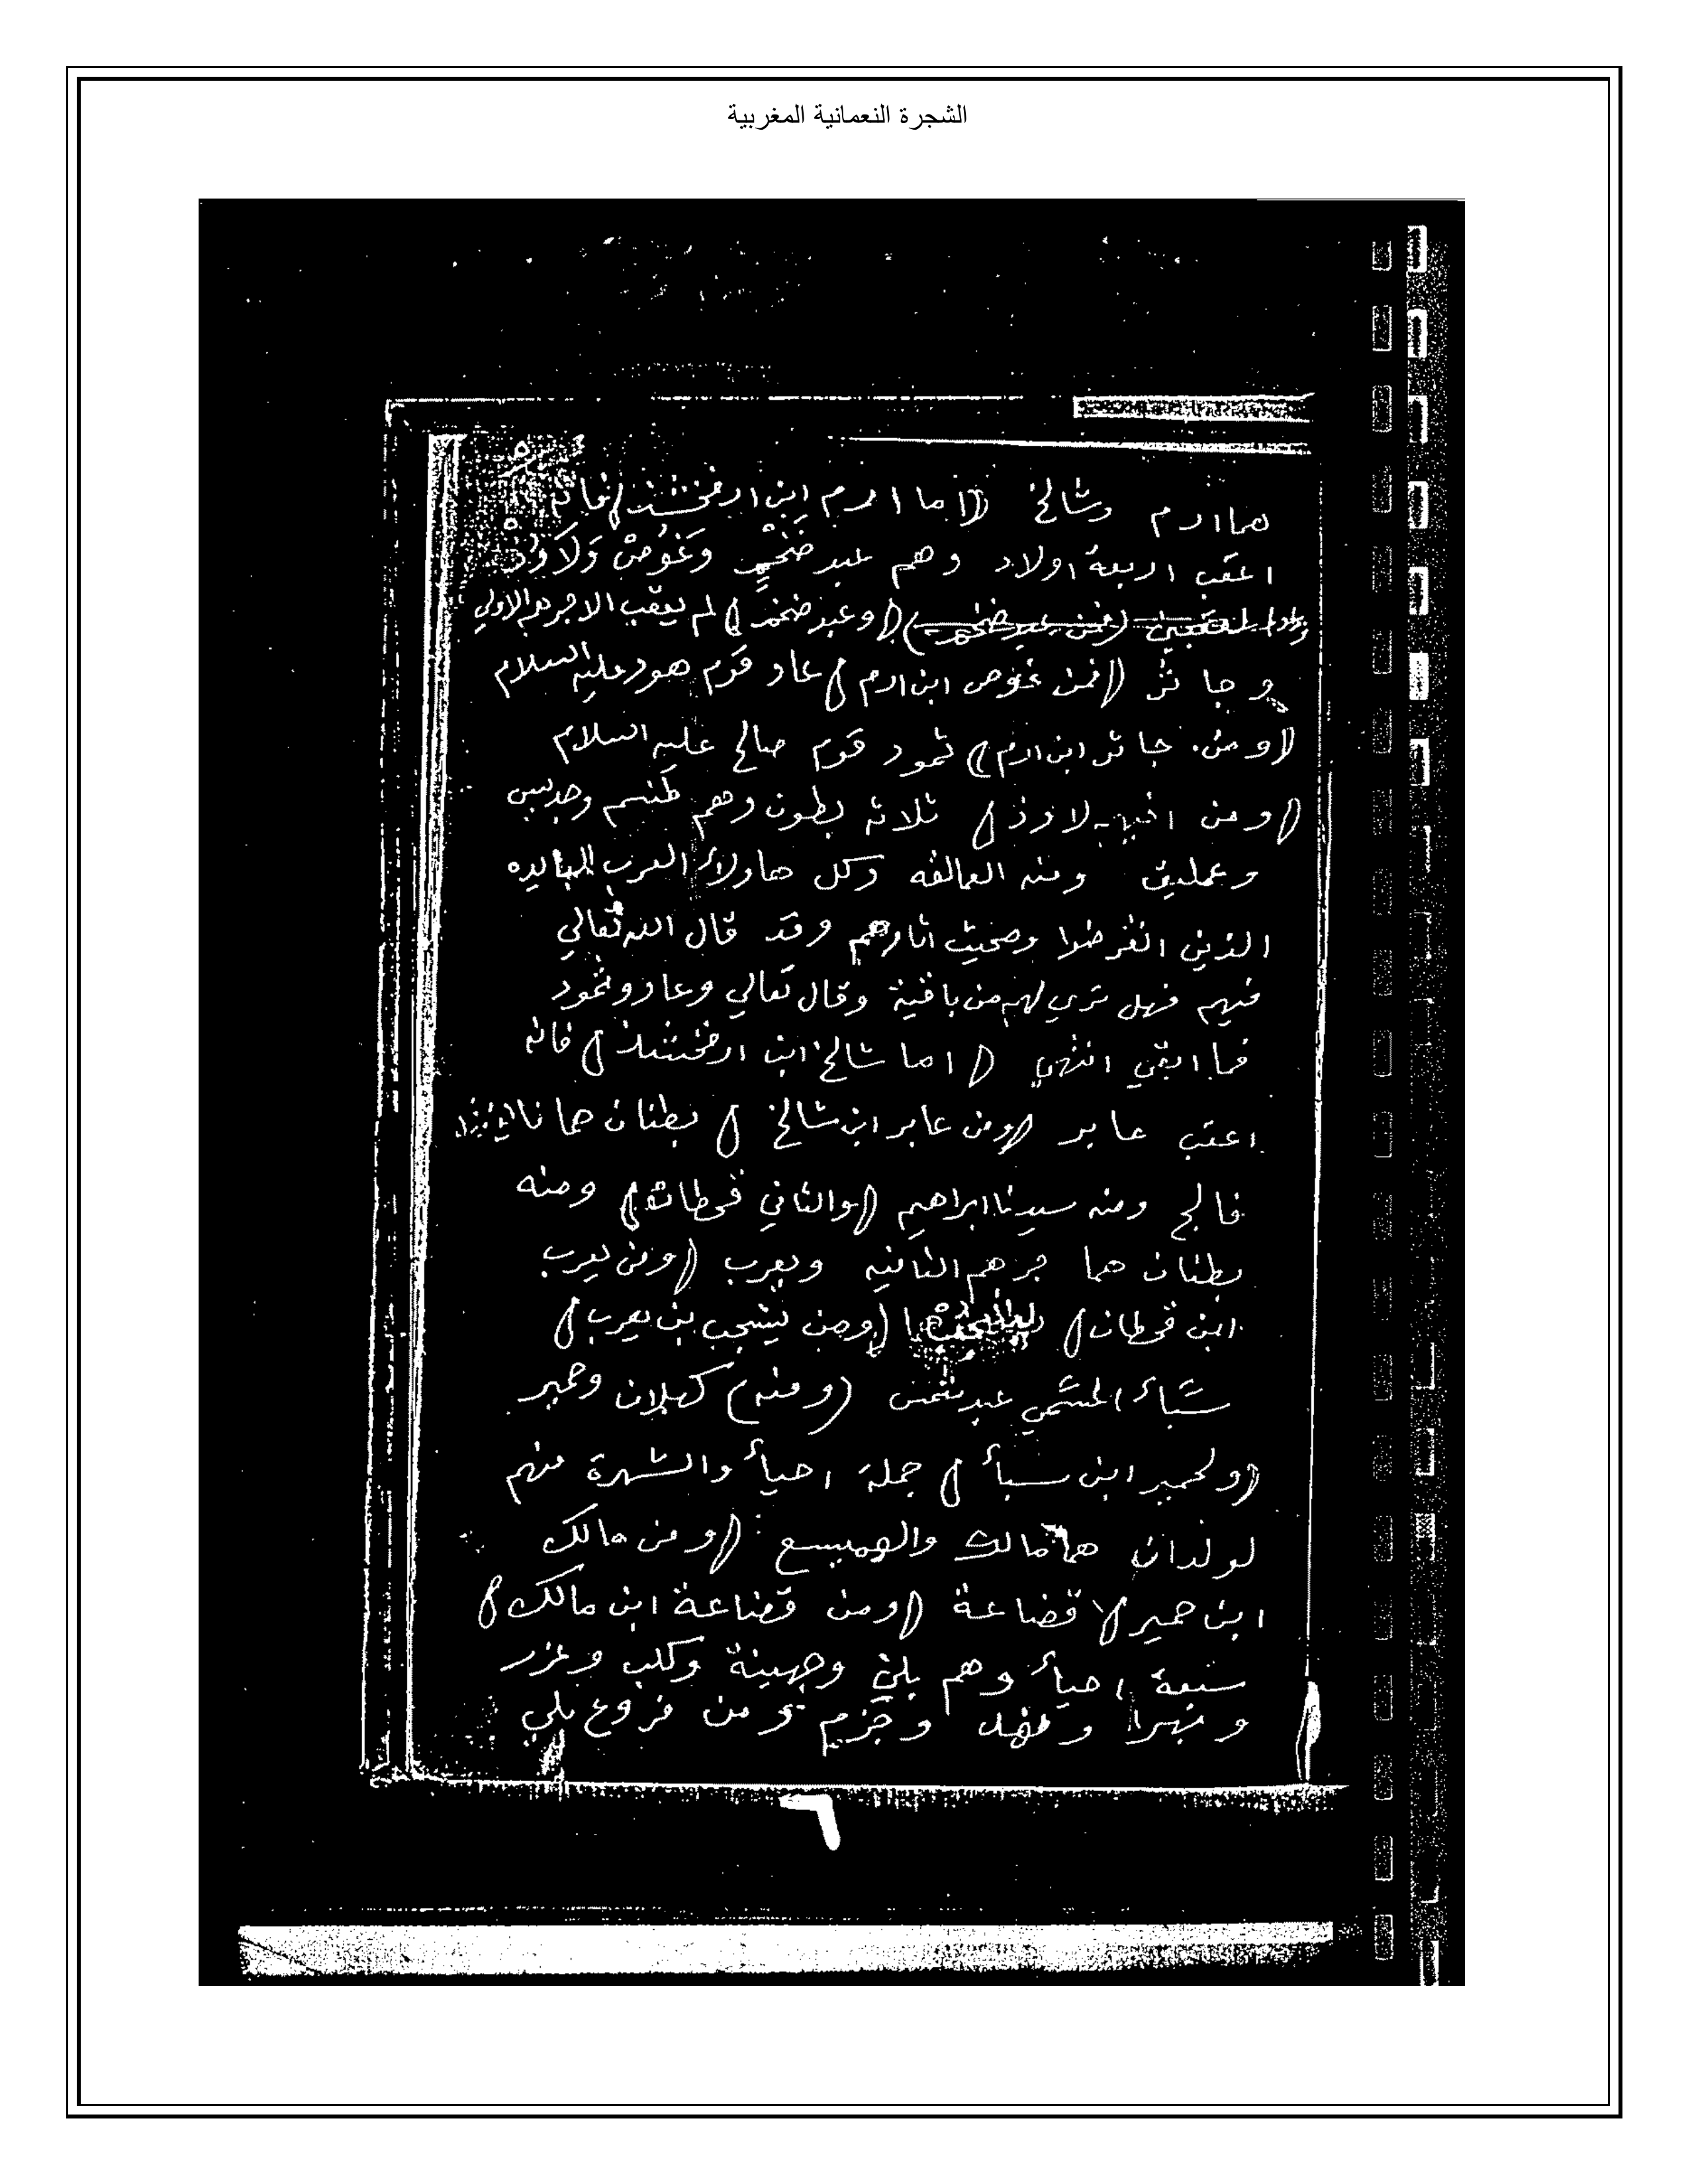 الشجرة النعمانية المغربية
هما ارم وشالخ (اما ارم ابن ارفخشذ) فانه
اعقب اربعة اولاد وهم عبد ضَخْم وَغَوُصْ وَلَاَوُذْ
(وعبد ضخم) لم يعقب الا جرهم الاولي
و جا ثر (فمن غوص ابن ارم) عاد قوم هود عليه السلام
(ومن جا ثر ابن ارم) ثمود قوم صالح عليه السلام
(ومن لاوذ) ثلاثه بطون وهم طسم وجديس
وعمليق ومنه العمالقه وكل هاولاء العرب البايده
الذين انقرضوا ومحيت اثارهم وقد قال الله تعالي
فيهم فهل تري لهم من باقية وقال تعالي وعاد وثمود
فما ابقي انتهي (اما شالخ ابن ارفخشذ) فانه
اعقب عابر (ومن عابر ابن شالخ) بطنان هما
فالج ومنه سيدنا ابراهيم (والثاني قحطان) ومنه
بطنان هما جرهم الثانيه ويعرب (ومن يعرب
ابن قحطان) (ومن يشجب بن يعرب)
سَبَاء المسَمي عبد شمس (ومنه) كهلان وحمير
(ولحمير ابن سبأ) جملة احيأ والشهرة منهم
لولدان هما مالك والهميسع (ومن مالك
ابن حمير) قضاعة (ومن قضاعة ابن مالك)
سبعة احيأ وهم بلي وجهينة وكلب وعزر
و بهرا و نهد وجرم ومن فروع بلي
٦